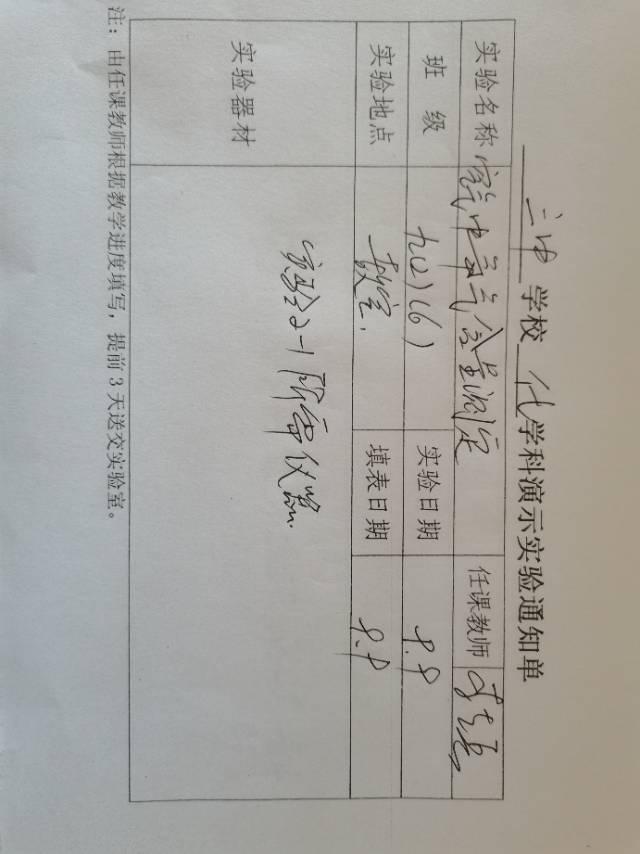 三中 学校 化 学科演示实验通知单
实验名称 空气中氧气含量测定 任课教师
班 级 九(2)(6) 实验日期 9.9
实验地点 教室. 填表日期 9.9
实验器材 实验2-1所需仪器.
注：由任课教师根据教学进度填写，提前 3 天送交实验室。